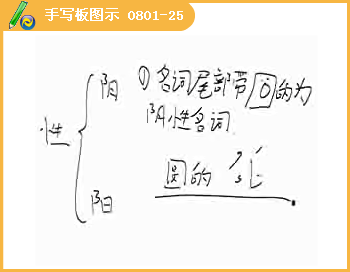 手写板图示 0801-25
阴 ①名词尾部带 的为
阴性名词
性
圆的
阳